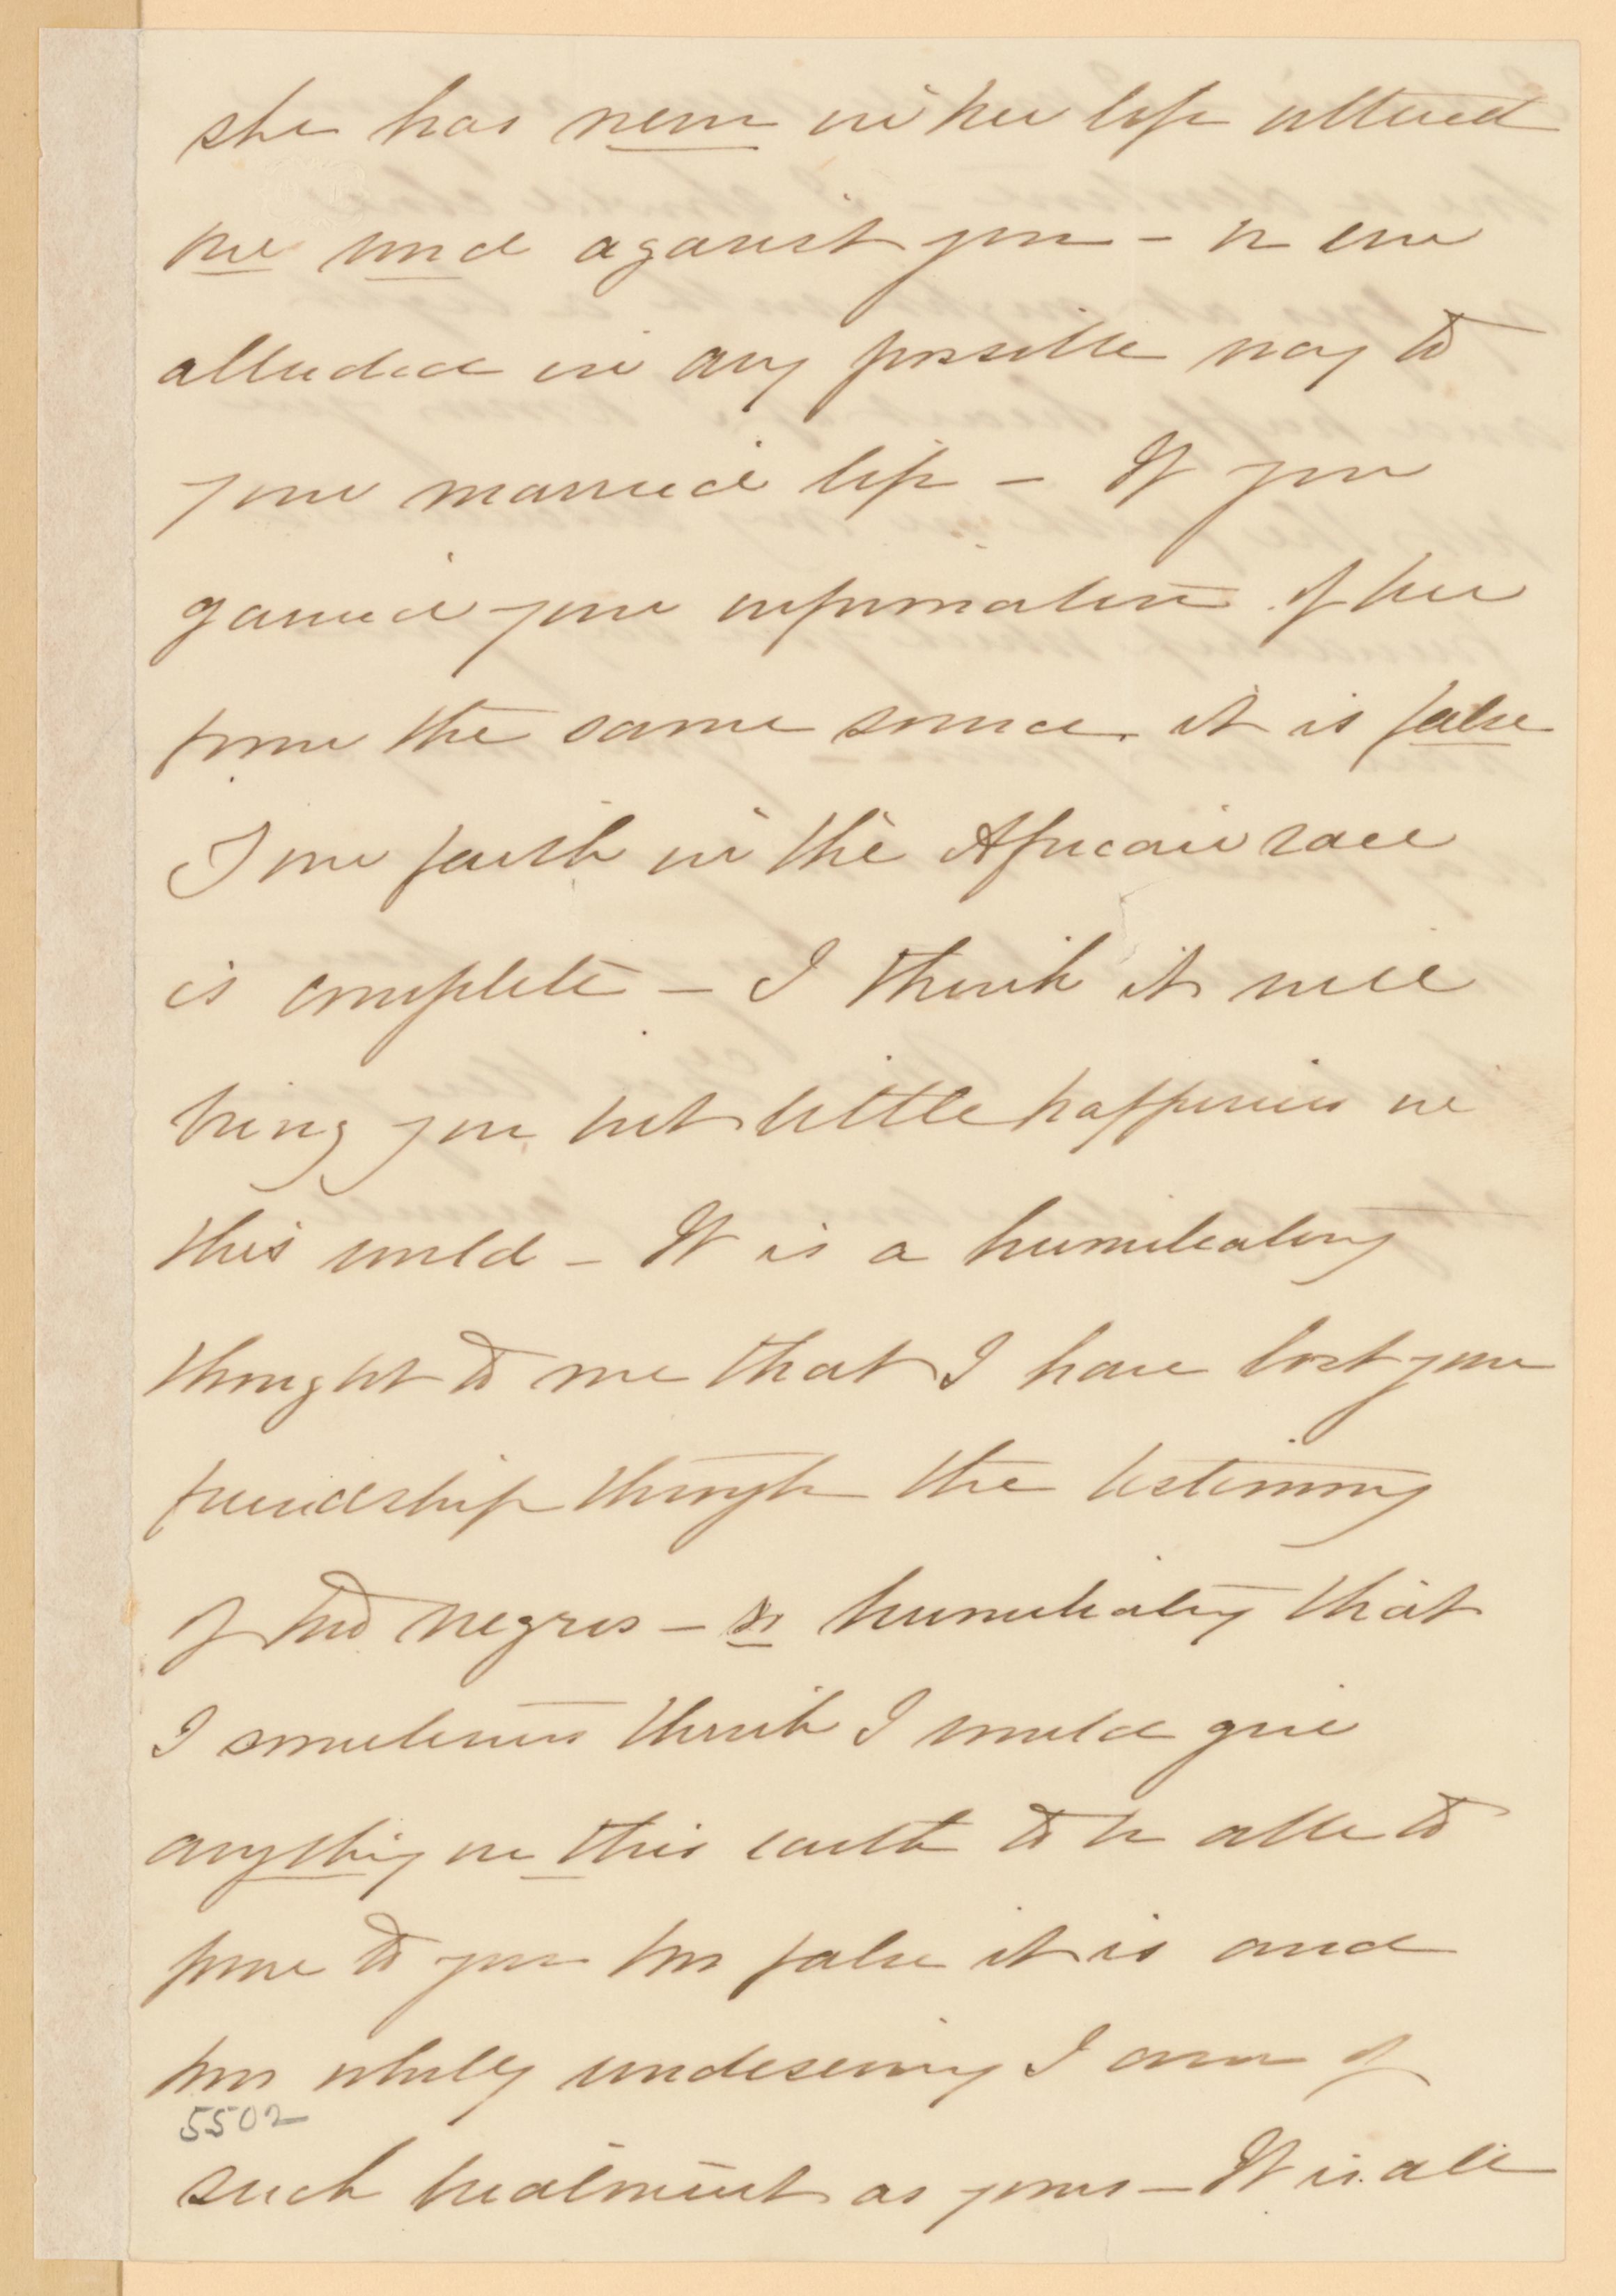 she has never in her life uttered
one word against you - or even
alluded in any possible way to
your married life - If you
gained your information of her
from the same source it is false
Your faith in the African race
is complete - I think it will
bring you but little happiness in
this world - It is a humiliating
thought to me that I have lost your
friendship through the testimony
of two negros - so humiliating that
I sometimes think I would give
anything on this earth to be able to
prove to you how false it is and
how wholly undeserving I am of
5502
such treatment as yours - It is all